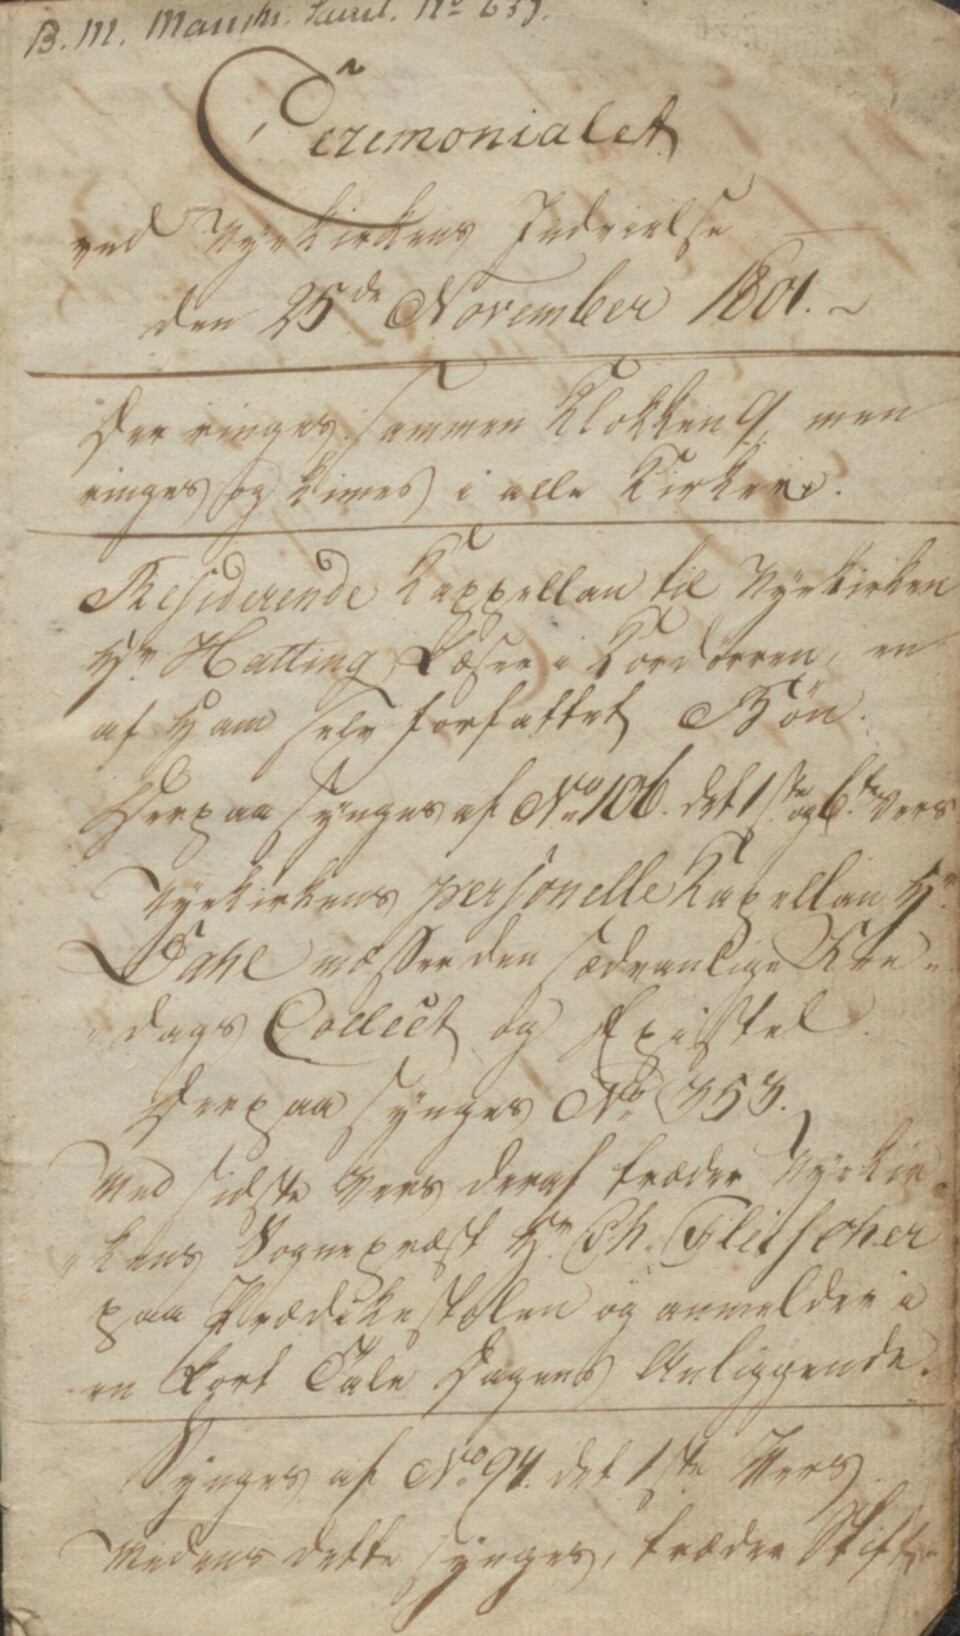 B. M. Manskr. Saml. No 639.
Ceremonialet
ved Nÿekirkens Indvielse
den 25de November 1801.
Der ringes sammen Klokken 9, men
ringes og kimes i alle Kirker.
Residerende Kappellan til Nÿekirken
Hr. Hatting Læser i Kordørren, en
af Ham selv forfattet Bön.
Derpaa sÿnges af No 106. det 1ste og 6te Vers
Nÿekirkens personelle Kapellan Hr.
Dahl messer den sædvanlige
dags Collect og Epistel.
Derpaa sÿnges No 353.
Ved sidste Vers deraf træder Nÿekir-
kens Sognepræst Hr. Ch. Fleischer
paa Prædikestolen og anmelder i
en kort Tale Dagens Anliggende.
Sÿnges af No 94. det 1ste Vers
Medens dette sÿnges, træder Stift-